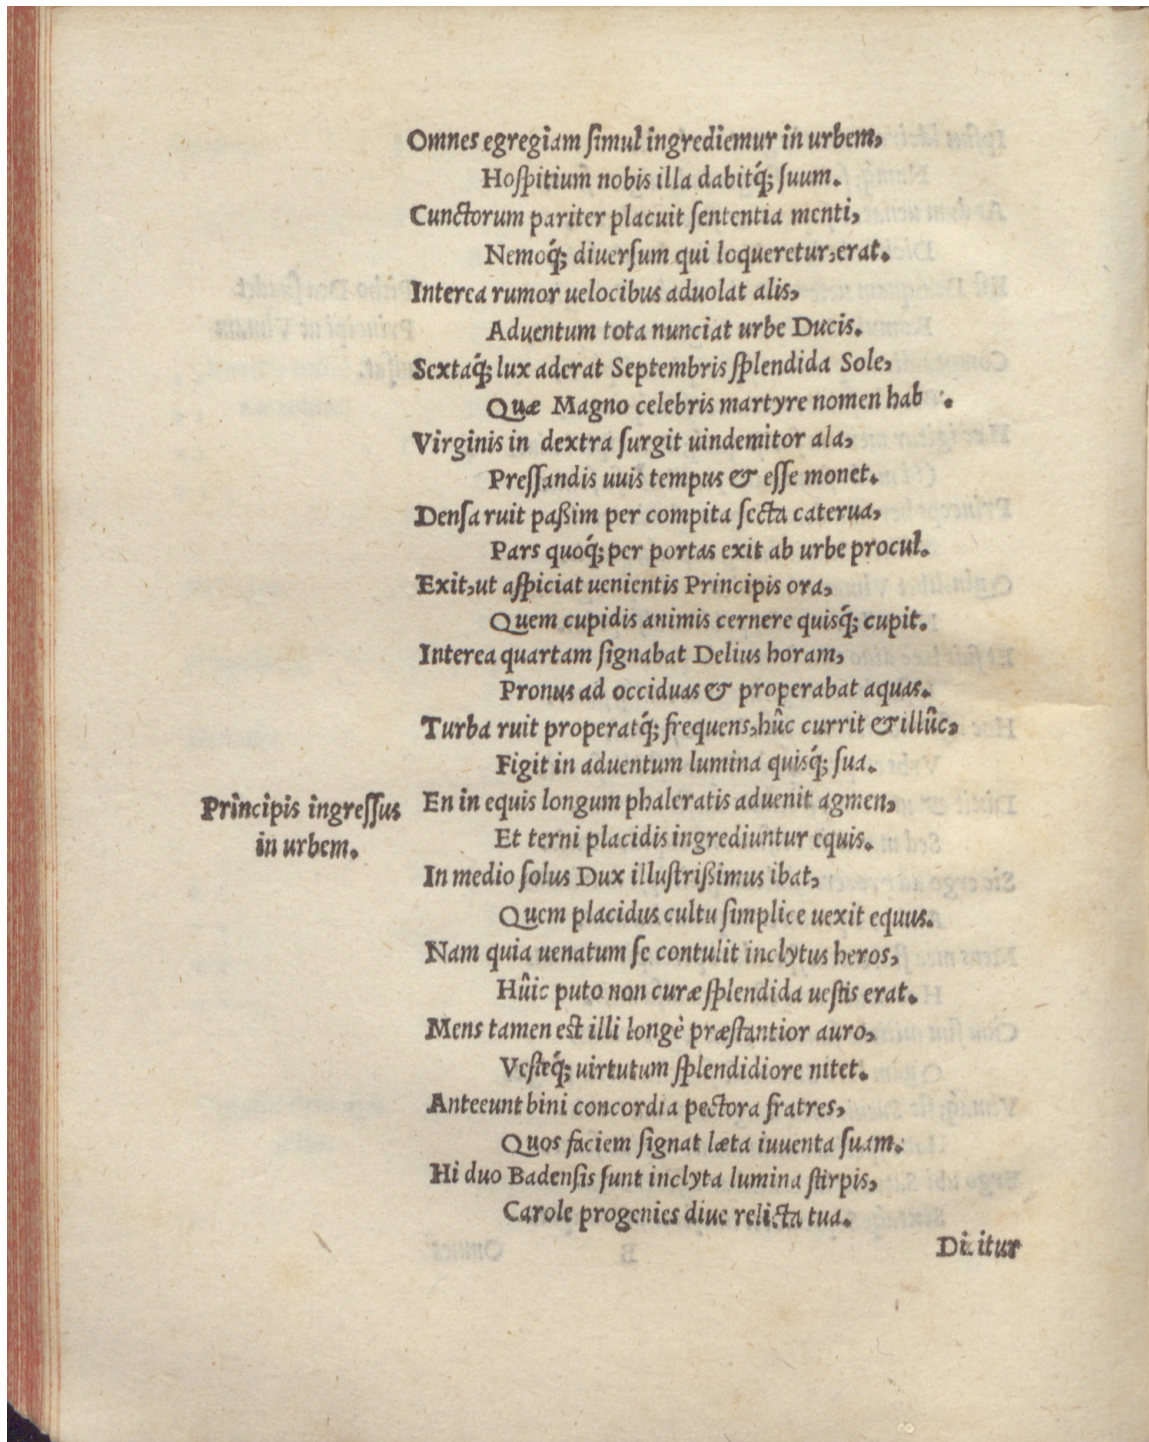 Omnes egregiam ſimul ingrediemur in urbem,
Hoſpitium nobis illa dabitq́; ſuum.
Cunctorum pariter placuit ſententia menti,
Nemoq́; diuerſum qui loqueretur, erat.
Interea rumor uelocibus aduolat alis,
Aduentum tota nunciat urbe Ducis.
Sextaq́; lux aderat Septembris ſplendida Sole,
Quæ Magno celebris martyre nomen hab .
Virginis in dextra ſurgit uindemitor ala,
Preſſandis uuis tempus & eſſe monet.
Denſa ruit paßim per compita ſecta caterua,
Pars quoq́; per portas exit ab urbe procul.
Exit, ut aſpiciat uenientis Principis ora,
Quem cupidis animis cernere quisq́; cupit.
Interea quartam ſignabat Delius horam,
Pronus ad occiduas & properabat aquas.
Turba ruit properatq́; frequens, hûc currit & illûc,
Figit in aduentum lumina quisq́; ſua.
Principis ingreſſus
in urbem.
En in equis longum phaleratis aduenit agmen,
Et terni placidis ingrediuntur equis.
In medio ſolus Dux illuſtrißimus ibat,
Quem placidus cultu ſimplice uexit equus.
Nam quia uenatum ſe contulit inclytus heros,
Hûic puto non curæ ſplendida ueſtis erat.
Mens tamen est illi longè præſtantior auro,
Veſteq́; uirtutum ſplendidiore nitet.
Anteeunt bini concordia pectora fratres,
Quos faciem ſignat læta iuuenta ſuam.
Hi duo Badenſis ſunt inclyta lumina ſtirpis,
Carole progenies diue relicta tua.